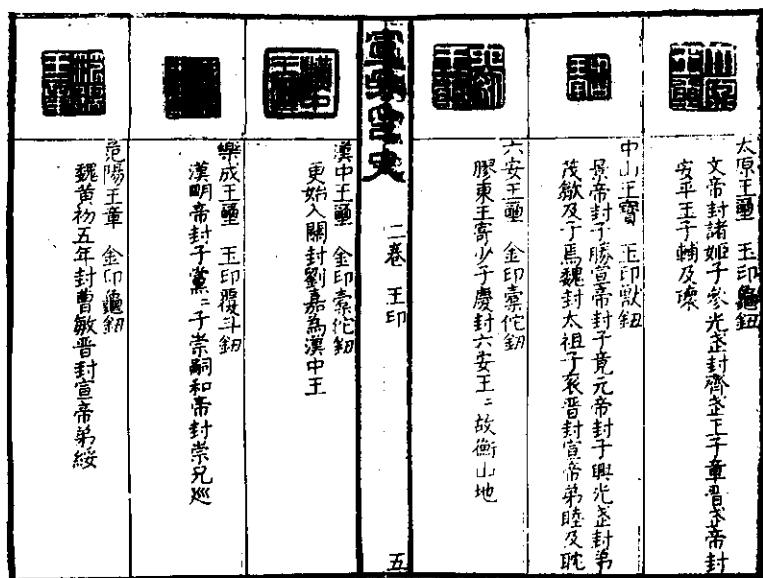 太原王璽　玉印龜鈕
文帝封諸姬子參光武封齊武王子章晉武帝封
安平王子輔及瓌
中山王寶　玉印獸鈕
景帝封子勝宣帝封子竟元帝封子興光武封弟
茂歙及子焉魏封太祖子袞晉封宣帝弟睦及耽
六安王璽　金印橐佗鈕
膠東王寄少子慶封六安王二故衡山地
宣和印史　二卷　王印　五
漢中王璽　金印橐佗鈕
更始入關封劉嘉為漢中王
樂成王璽　玉印覆斗鈕
漢明帝封子黨二子崇嗣和帝封崇兄巡
范陽王章　金印龜鈕
魏黄初五年封曹敏晉封宣帝弟綏